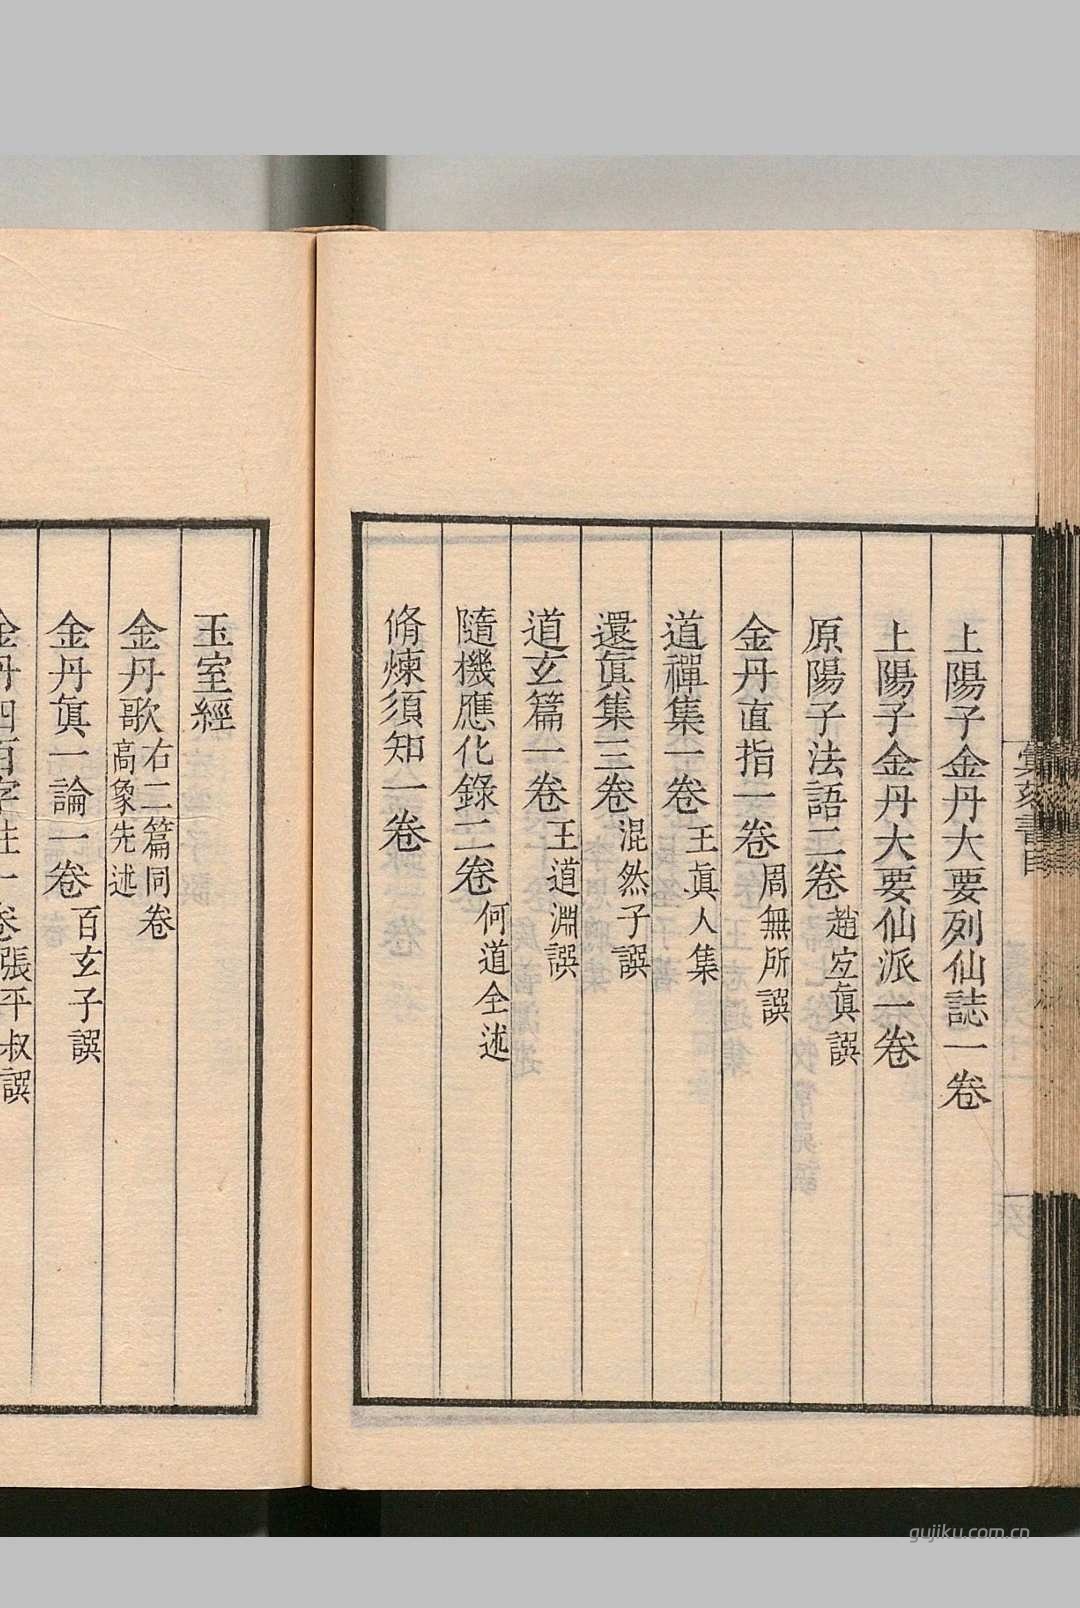 彙刻書目
上陽子金丹大要列仙誌一卷
上陽子金丹大要仙派一卷
原陽子法語二卷趙宜眞譔
金丹直指一卷周無所譔
道禪集一卷王眞人集
還眞集三卷混然子譔
道玄篇一卷王道淵譔
隨機應化錄二卷何道全述
脩煉須知一卷
玉室經
金丹歌右二篇同卷
高象先述
金丹眞一論一卷百玄子譔
金丹四百字註一卷張平叔譔
gujiku.com.cn